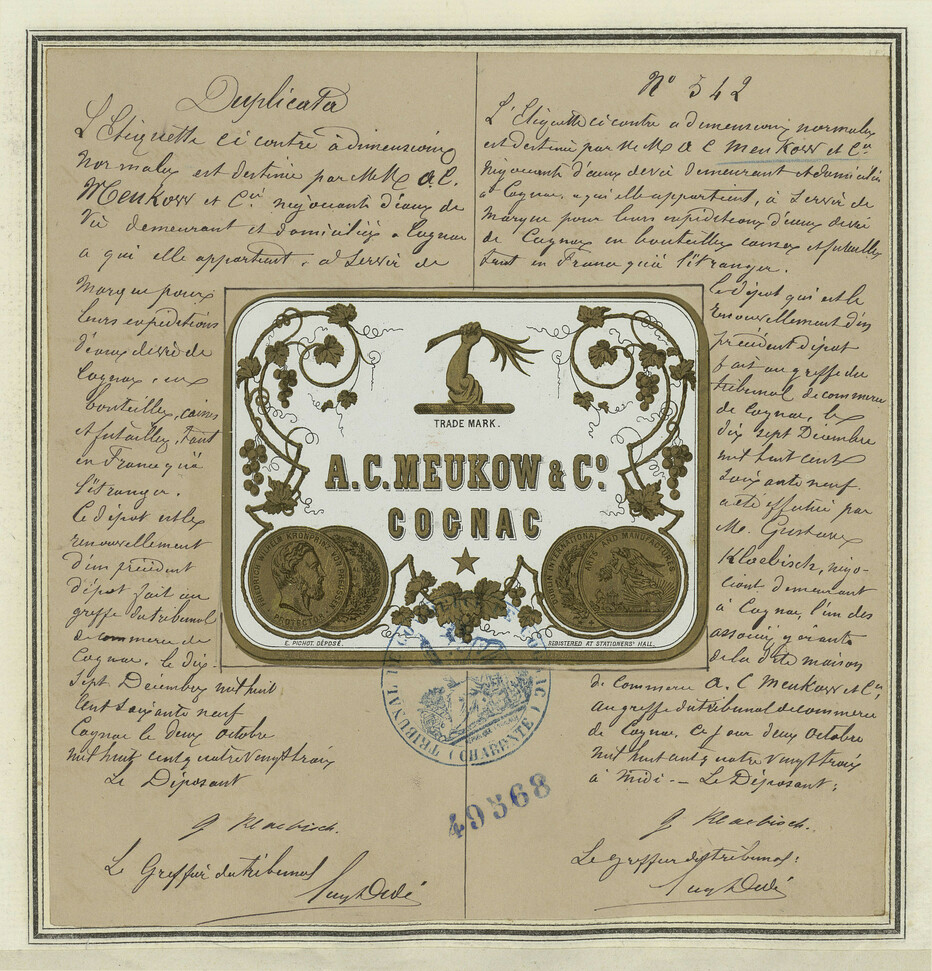 Duplicata
L'Etiquette ci contre à dimensions
normales est destinée par MM. A.C.
Meukow et Cie négociants d'eaux de
Vie demeurant et domiciliés à Cognac
a qui elle appartient, à Servir de
Marque pour
leurs expéditions
d'eaux de vie de
Cognac, en
bouteilles, caisses
et futailles, tant
en France qu'à
l'étranger.
Ce dépôt est le
renouvellement
d'un précédent
dépôt fait au
greffe du tribunal
de commerce de
Cognac, le dix-
Sept Décembre mil huit
Cent soixante neuf
Cognac le deux octobre
mil huit cent quatre vingt trois
Le Déposant
G Klaebisch.
Le Greffier du tribunal
No 342
L'Etiquette ci contre a dimensions normales
est destinée par MM A C Meukow et Cie
Négociants d'eaux de vie demeurant et domiciliés
à Cognac, a qui elle appartient, à Servir de
Marque pour leurs expéditions d'eaux de vie
de Cognac en bouteilles caisses et futailles
tant en France qu'à l'étranger.
Ce dépôt qui est le
renouvellement d'un
précédent dépôt
fait au greffe du
tribunal de commerce
de Cognac, le
dix sept Décembre
mil huit cent
soixante neuf
a été effectué par
M. Gustave
Klaebisch, négo-
ciant demeurant
à Cognac, l'un des
associés gérants
de la dite maison
de Commerce A. C Meukow et Cie,
au greffe du tribunal de commerce
de Cognac, ce jour deux octobre
mil huit cent quatre vingt trois
à midi -- Le Déposant:
G Klaebisch.
Le Greffier du tribunal:
TRADE MARK.
A.C. MEUKOW & Co.
COGNAC
FRIEDRICH WILHELM KRONPRINZ VON PREUSSEN
PROTECTOR
LONDON INTERNATIONAL
ARTS AND MANUFACTURES
E. PICHOT. DÉPOSÉ.
REGISTERED AT STATIONERS' HALL.
TRIBUNAL
(CHARENTE)
49568